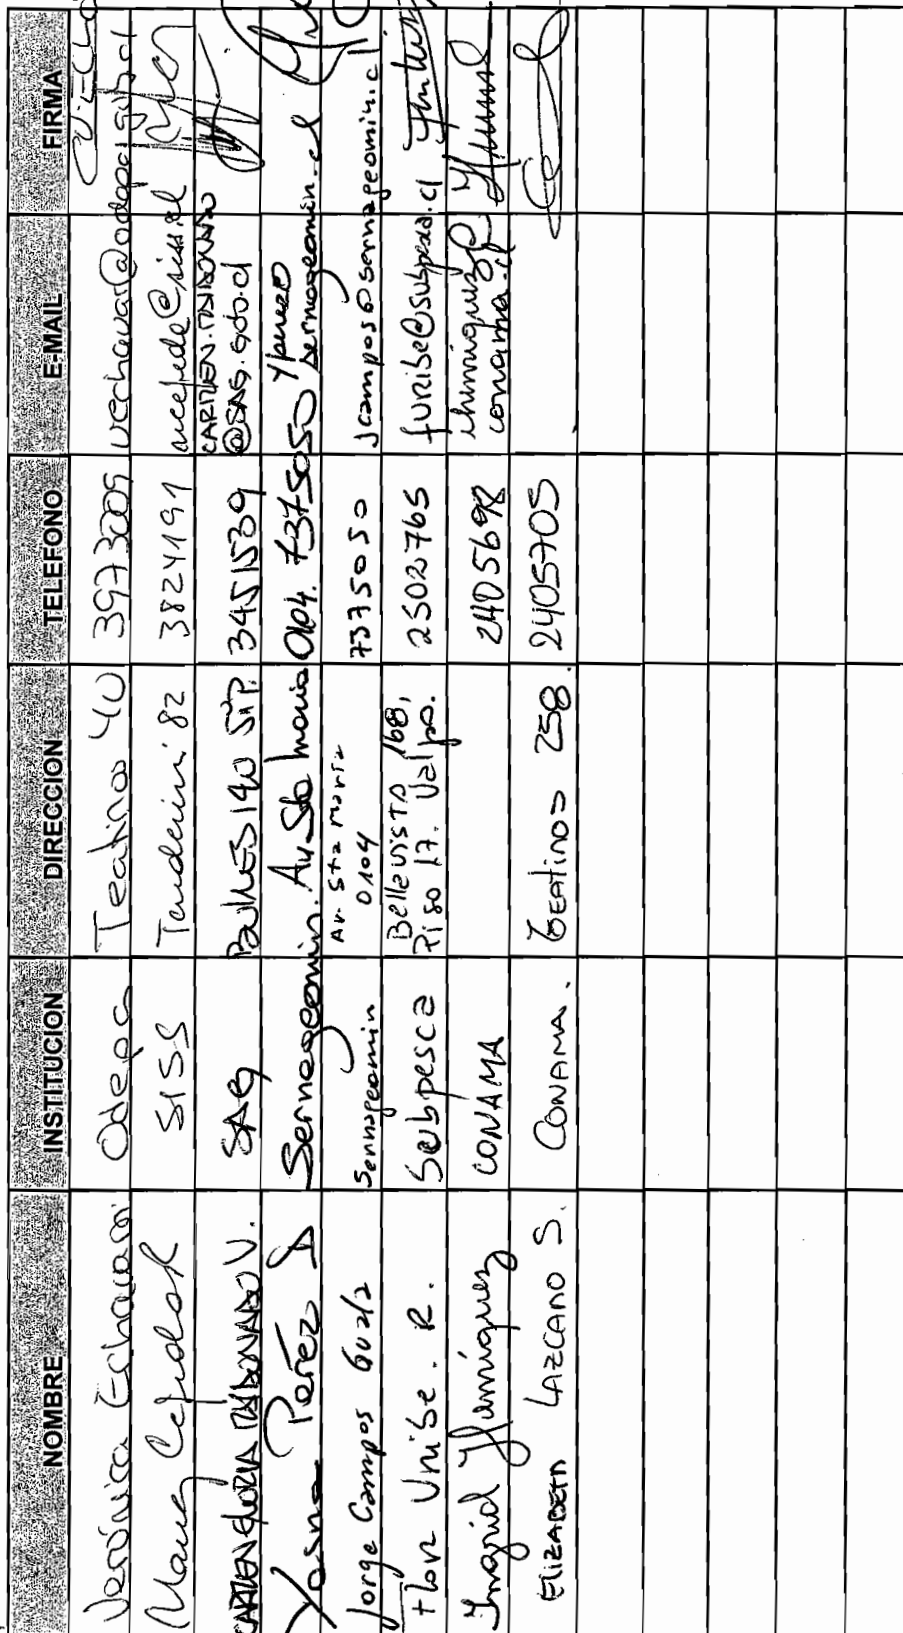 NOMBRE INSTITUCION DIRECCION TELEFONO E-MAIL FIRMA
Verónica Echavarri Odepa Teatinos 40 3973009 vechavar@odepa.gob.cl
Nancy Cepeda R SISS Tenderini 82 3824191 ncepeda@siss.cl
CARMEN GLORIA MALDONADO V. SAG BULNES 140 STP. 3451539 CARMEN.MALDONADO
@SAG.gob.cl
Yasna Perez S Sernageomin. Av. Sta Maria 0104. 7375050 yperez@
sernageomin.cl
Jorge Campos Guz/z Sernageomin Av. Sta María
0104 7375050 jcampos@sernageomin.cl
Flor Uribe. R. Subpesca Bellavista 168,
Piso 17. Valpo. 2502765 furibe@subpesca.cl
Ingrid Henríquez CONAMA 2405698 ihenriquez@
conama.cl
ELIZABETH LAZCANO S. CONAMA. Teatinos 258. 2405705